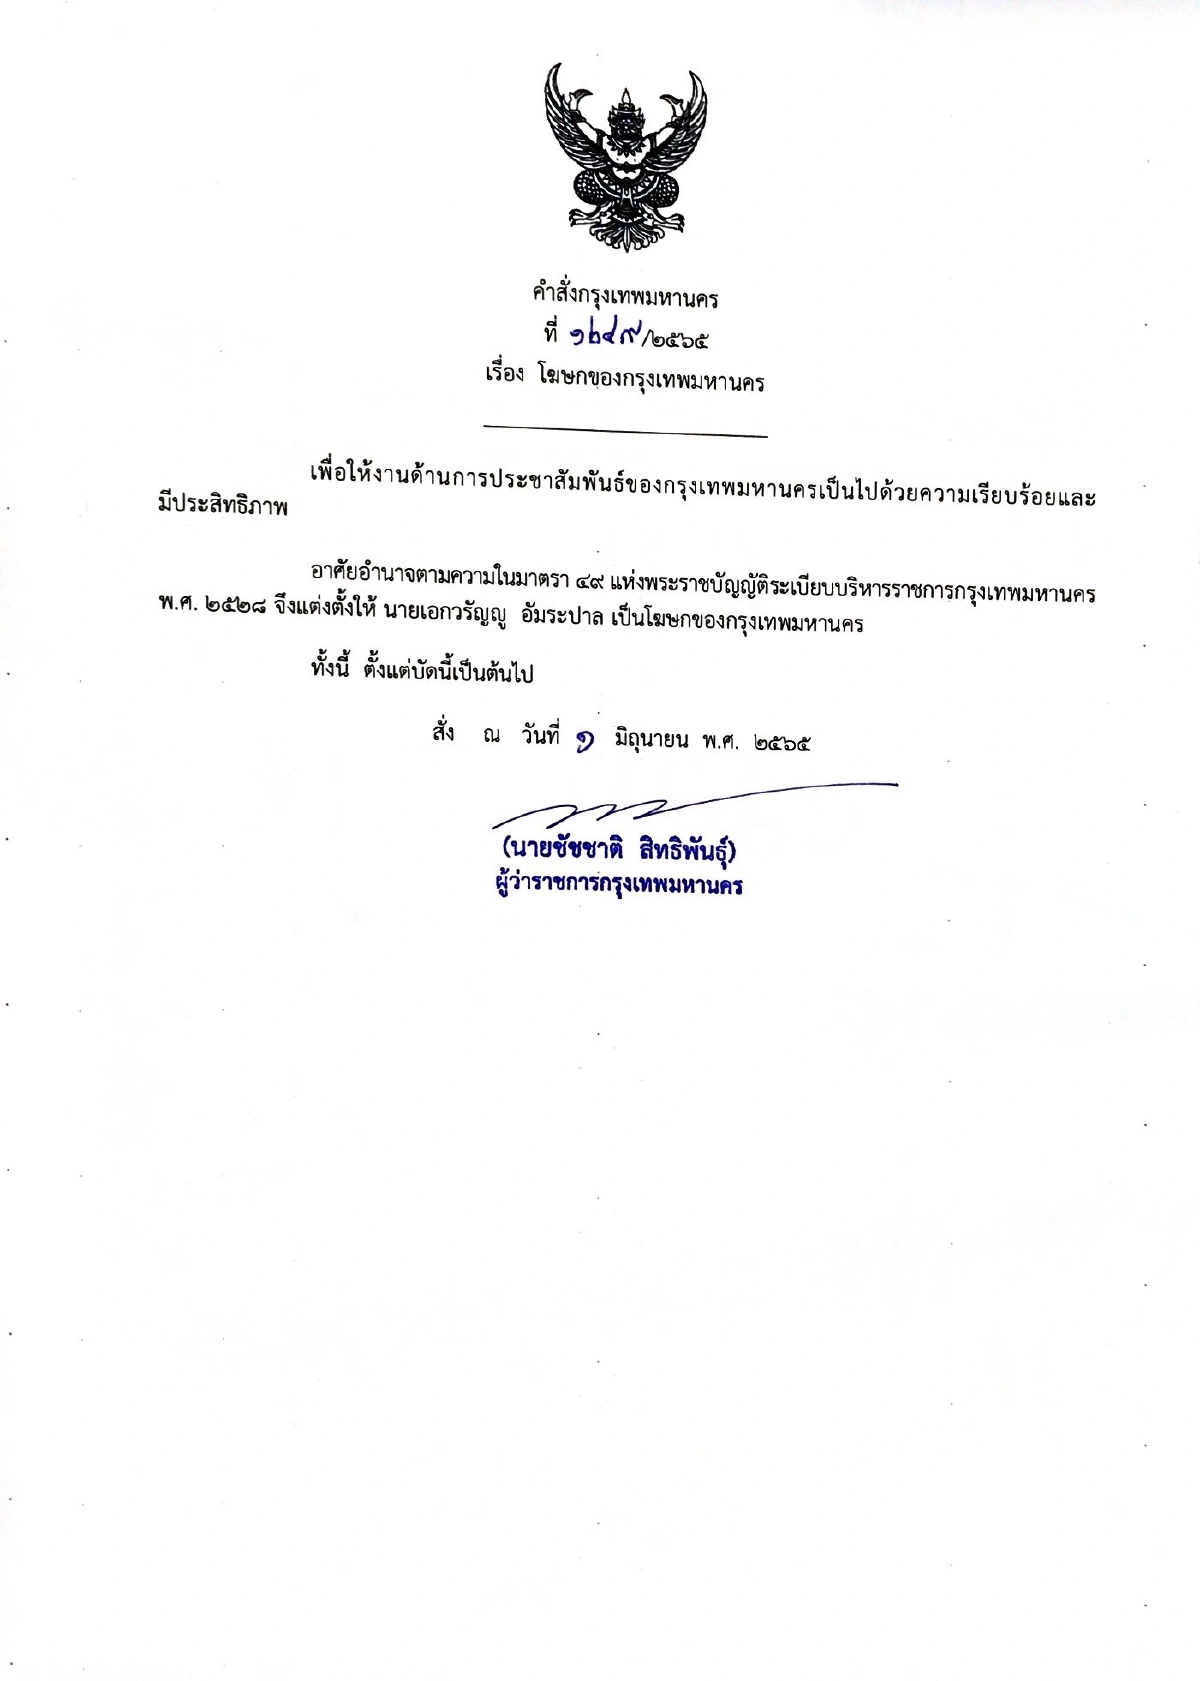 คำสั่งกรุงเทพมหานคร
ที่ ๑๒๔๙/๒๕๖๕
เรื่อง โฆษกของกรุงเทพมหานคร
เพื่อให้งานด้านการประชาสัมพันธ์ของกรุงเทพมหานครเป็นไปด้วยความเรียบร้อยและ
มีประสิทธิภาพ
อาศัยอำนาจตามความในมาตรา ๔๙ แห่งพระราชบัญญัติระเบียบบริหารราชการกรุงเทพมหานคร
พ.ศ. ๒๕๒๘ จึงแต่งตั้งให้ นายเอกวรัญญู อัมระปาล เป็นโฆษกของกรุงเทพมหานคร
ทั้งนี้ ตั้งแต่บัดนี้เป็นต้นไป
สั่ง ณ วันที่ ๑ มิถุนายน พ.ศ. ๒๕๖๕
(นายชัชชาติ สิทธิพันธุ์)
ผู้ว่าราชการกรุงเทพมหานคร